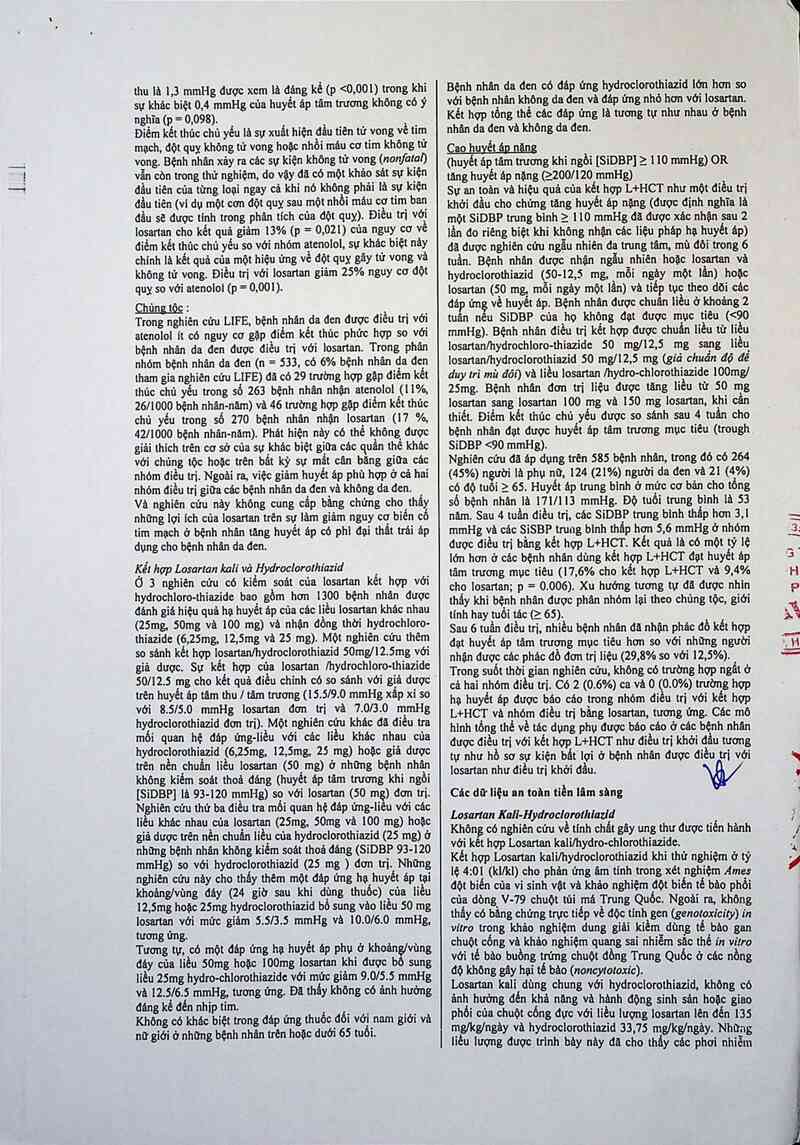 thu là 1,3 mmHg được xem là đáng kể (p <0,001) trong khi
sự khác biệt 0,4 mmHg của huyết áp tâm trương không có ý
nghĩa (p = 0,098).
Điểm kết thúc chủ yếu là sự xuất hiện đầu tiên tử vong về tim
mạch, đột quỵ không tử vong hoặc nhồi máu cơ tim không tử
vong. Bệnh nhân xảy ra các sự kiện không tử vong (nonfatal)
vẫn còn trong thử nghiệm, do vậy đã có một khảo sát sự kiện
đầu tiên của từng loại ngay cả khi nó không phải là sự kiện
đầu tiên (ví dụ một cơn đột quỵ sau một nhồi máu cơ tim ban
đầu sẽ được tính trong phân tích của đột quỵ). Điều trị với
losartan cho kết quả giảm 13% (p = 0,021) của nguy cơ về
điểm kết thúc chủ yếu so với nhóm atenolol, sự khác biệt này
chính là kết quả của một hiệu ứng về đột quỵ gây tử vong và
không tử vong. Điều trị với losartan giảm 25% nguy cơ đột
quỵ so với atenolol (p = 0,001).
Chủng tộc :
Trong nghiên cứu LIFE, bệnh nhân da đen được điều trị với
atenolol ít có nguy cơ gặp điểm kết thúc phức hợp so với
bệnh nhân da đen được điều trị với losartan. Trong phân
nhóm bệnh nhân da đen (n = 533, có 6% bệnh nhân da đen
tham gia nghiên cứu LIFE) đã có 29 trường hợp gặp điểm kết
thúc chủ yếu trong số 263 bệnh nhân nhận atenolol (11%,
26/1000 bệnh nhân-năm) và 46 trường hợp gặp điểm kết thúc
chủ yếu trong số 270 bệnh nhân nhận losartan (17 %,
42/1000 bệnh nhân-năm). Phát hiện này có thể không được
giải thích trên cơ sở của sự khác biệt giữa các quần thể khác
với chủng tộc hoặc trên bất kỳ sự mất cân bằng giữa các
nhóm điều trị. Ngoài ra, việc giảm huyết áp phù hợp ở cả hai
nhóm điều trị giữa các bệnh nhân da đen và không da đen.
Và nghiên cứu này không cung cấp bằng chứng cho thấy
những lợi ích của losartan trên sự làm giảm nguy cơ biến cố
tim mạch ở bệnh nhân tăng huyết áp có phì đại thất trái áp
dụng cho bệnh nhân da đen.
Kết hợp Losartan kali và Hydroclorothiazid
Ở 3 nghiên cứu có kiểm soát của losartan kết hợp với
hydrochloro-thiazide bao gồm hơn 1300 bệnh nhân được
đánh giá hiệu quả hạ huyết áp của các liều losartan khác nhau
(25mg, 50mg và 100 mg) và nhận đồng thời hydrochloro-
thiazide (6,25mg, 12,5mg và 25 mg). Một nghiên cứu thêm
so sánh kết hợp losartan/hydroclorothiazid 50mg/12.5mg với
giả dược. Sự kết hợp của losartan /hydrochloro-thiazide
50/12.5 mg cho kết quả điều chỉnh có so sánh với giả dược
trên huyết áp tâm thu / tâm trương (15.5/9.0 mmHg xấp xỉ so
với 8.5/5.0 mmHg losartan đơn trị và 7.0/3.0 mmHg
hydroclorothiazid đơn trị). Một nghiên cứu khác đã điều tra
mối quan hệ đáp ứng-liều với các liều khác nhau của
hydroclorothiazid (6,25mg, 12,5mg, 25 mg) hoặc giả dược
trên nền chuẩn liều losartan (50 mg) ở những bệnh nhân
không kiểm soát thoả đáng (huyết áp tâm trương khi ngồi
[SiDBP] là 93-120 mmHg) so với losartan (50 mg) đơn trị.
Nghiên cứu thứ ba điều tra mối quan hệ đáp ứng-liều với các
liều khác nhau của losartan (25mg, 50mg và 100 mg) hoặc
giả dược trên nền chuẩn liều của hydroclorothiazid (25 mg) ở
những bệnh nhân không kiểm soát thoả đáng (SiDBP 93-120
mmHg) so với hydroclorothiazid (25 mg ) đơn trị. Những
nghiên cứu này cho thấy thêm một đáp ứng hạ huyết áp tại
khoảng/vùng đáy (24 giờ sau khi dùng thuốc) của liều
12,5mg hoặc 25mg hydroclorothiazid bổ sung vào liều 50 mg
losartan với mức giảm 5.5/3.5 mmHg và 10.0/6.0 mmHg,
tương ứng.
Tương tự, có một đáp ứng hạ huyết áp phụ ở khoảng/vùng
đáy của liều 50mg hoặc 100mg losartan khi được bổ sung
liều 25mg hydro-chlorothiazide với mức giảm 9.0/5.5 mmHg
và 12.5/6.5 mmHg, tương ứng. Đã thấy không có ảnh hưởng
đáng kể đến nhịp tim.
Không có khác biệt trong đáp ứng thuốc đối với nam giới và
nữ giới ở những bệnh nhân trên hoặc dưới 65 tuổi.
Bệnh nhân da đen có đáp ứng hydroclorothiazid lớn hơn so
với bệnh nhân không da đen và đáp ứng nhỏ hơn với losartan.
Kết hợp tổng thể các đáp ứng là tương tự như nhau ở bệnh
nhân da đen và không da đen.
Cao huyết áp nặng
(huyết áp tâm trương khi ngồi [SiDBP] ≥ 110 mmHg) OR
tăng huyết áp nặng (≥200/120 mmHg)
Sự an toàn và hiệu quả của kết hợp L+HCT như một điều trị
khởi đầu cho chứng tăng huyết áp nặng (được định nghĩa là
một SiDBP trung bình ≥ 110 mmHg đã được xác nhận sau 2
lần đo riêng biệt khi không nhận các liệu pháp hạ huyết áp)
đã được nghiên cứu ngẫu nhiên đa trung tâm, mù đôi trong 6
tuần. Bệnh nhân được nhận ngẫu nhiên hoặc losartan và
hydroclorothiazid (50-12,5 mg, mỗi ngày một lần) hoặc
losartan (50 mg, mỗi ngày một lần) và tiếp tục theo dõi các
đáp ứng về huyết áp. Bệnh nhân được chuẩn liều ở khoảng 2
tuần nếu SiDBP của họ không đạt được mục tiêu (<90
mmHg). Bệnh nhân điều trị kết hợp được chuẩn liều từ liều
losartan/hydrochloro-thiazide 50 mg/12,5 mg sang liều
losartan/hydroclorothiazid 50 mg/12,5 mg (giả chuẩn độ để
duy trì mù đôi) và liều losartan /hydro-chlorothiazide 100mg/
25mg. Bệnh nhân đơn trị liệu được tăng liều từ 50 mg
losartan sang losartan 100 mg và 150 mg losartan, khi cần
thiết. Điểm kết thúc chủ yếu được so sánh sau 4 tuần cho
bệnh nhân đạt được huyết áp tâm trương mục tiêu (trough
SiDBP <90 mmHg).
Nghiên cứu đã áp dụng trên 585 bệnh nhân, trong đó có 264
(45%) người là phụ nữ, 124 (21%) người da đen và 21 (4%)
có độ tuổi ≥ 65. Huyết áp trung bình ở mức cơ bản cho tổng
số bệnh nhân là 171/113 mmHg. Độ tuổi trung bình là 53
năm. Sau 4 tuần điều trị, các SiDBP trung bình thấp hơn 3,1
mmHg và các SiSBP trung bình thấp hơn 5,6 mmHg ở nhóm
được điều trị bằng kết hợp L+HCT. Kết quả là có một tỷ lệ
lớn hơn ở các bệnh nhân dùng kết hợp L+HCT đạt huyết áp
tâm trương mục tiêu (17,6% cho kết hợp L+HCT và 9,4%
cho losartan; p = 0.006). Xu hướng tương tự đã được nhìn
thấy khi bệnh nhân được phân nhóm lại theo chủng tộc, giới
tính hay tuổi tác (≥ 65).
Sau 6 tuần điều trị, nhiều bệnh nhân đã nhận phác đồ kết hợp
đạt huyết áp tâm trương mục tiêu hơn so với những người
nhận được các phác đồ đơn trị liệu (29,8% so với 12,5%).
Trong suốt thời gian nghiên cứu, không có trường hợp ngất ở
cả hai nhóm điều trị. Có 2 (0.6%) ca và 0 (0.0%) trường hợp
hạ huyết áp được báo cáo trong nhóm điều trị với kết hợp
L+HCT và nhóm điều trị bằng losartan, tương ứng. Các mô
hình tổng thể về tác dụng phụ được báo cáo ở các bệnh nhân
được điều trị với kết hợp L+HCT như điều trị khởi đầu tương
tự như hồ sơ sự kiện bất lợi ở bệnh nhân được điều trị với
losartan như điều trị khởi đầu.
Các dữ liệu an toàn tiền lâm sàng
Losartan Kali-Hydroclorothiazid
Không có nghiên cứu về tính chất gây ung thư được tiến hành
với kết hợp Losartan kali/hydro-chlorothiazide.
Kết hợp Losartan kali/hydroclorothiazid khi thử nghiệm ở tỷ
lệ 4:01 (kl/kl) cho phản ứng âm tính trong xét nghiệm Ames
đột biến của vi sinh vật và khảo nghiệm đột biến tế bào phổi
của dòng V-79 chuột túi má Trung Quốc. Ngoài ra, không
thấy có bằng chứng trực tiếp về độc tính gen (genotoxicity) in
vitro trong khảo nghiệm dung giải kiềm dùng tế bào gan
chuột cống và khảo nghiệm quang sai nhiễm sắc thể in vitro
với tế bào buồng trứng chuột đồng Trung Quốc ở các nồng
độ không gây hại tế bào (noncytotoxic).
Losartan kali dùng chung với hydroclorothiazid, không có
ảnh hưởng đến khả năng và hành động sinh sản hoặc giao
phối của chuột cống đực với liều lượng losartan lên đến 135
mg/kg/ngày và hydroclorothiazid 33,75 mg/kg/ngày. Những
liều lượng được trình bày này đã cho thấy các phơi nhiễm